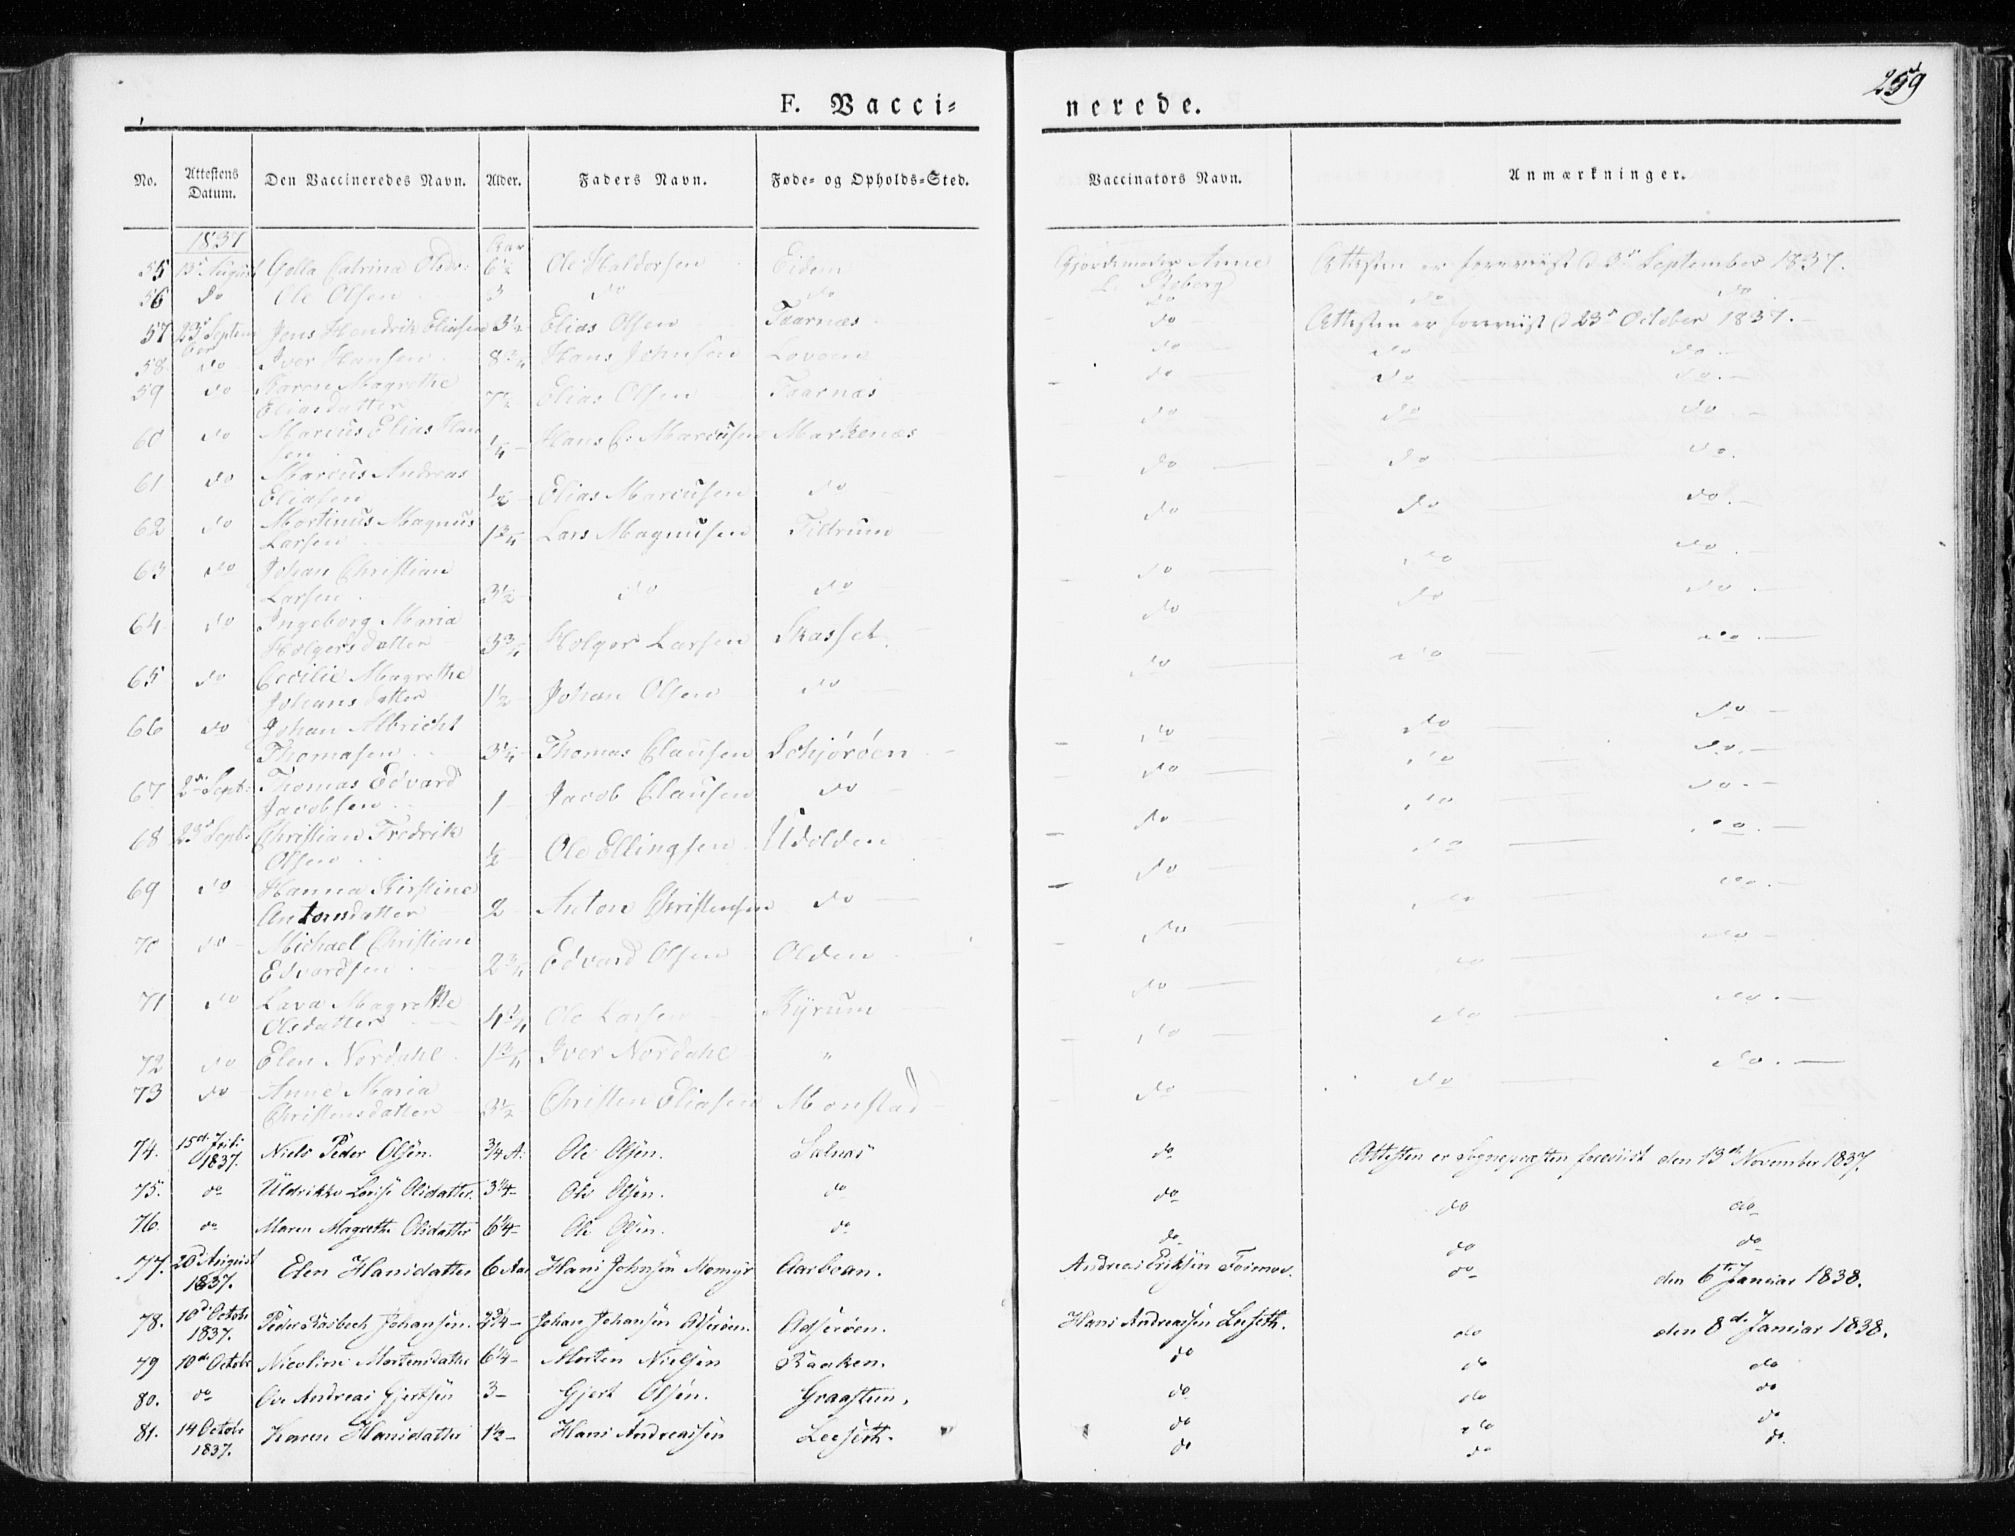 259
F. Vacci-
nerede.
No. Attestens Datum. Den Vaccineredes Navn. Alder. Faders Navn. Føde- og Opholds-Sted. Vaccinators Navn. Anmærkninger.
1837 Aar
55 13de August Catrina Olsdr: 6½ Ole Haldorsen Eidem Gjordemoder Anne Attesten er foreviist d 3d September 1837.
56 do Ole Olsen 3 do do do do do
57 23d Septem Jens Hendrik Eliasen 3½ Elias Olsen Taarnæs do Attesten er foreviist d 23d October 1837.
ber
58 do Iver Hansen 8¾ Hans Johnsen do do do
59 do Karen Magrethe
Eliasdatter 7½ Elias Olsen Taarnæs do do do
60 do Marcus Elias Han
sen ¼ Hans C: Marcusen Markenæs do do do
61 do Marcus Andreas
Eliasen ½ Elias Marcusen do do do do
62 do Martinus Magnus
Larsen 1¾ Lars Magnusen Tiltrum do do do
63 do Johan Christian
Larsen 3½ do do do do do
64 do Ingeborg Maria
Holgersdatter 3¾ Holger Larsen Skasset do do do
65 do Cecilie Magrethe
Johansdatter 1½ Johan Olsen do do do do
66 do Johan Albricht
Thomasen 3¼ Thomas Clausen Schjørøen do do do
67 2de Sept: Thomas Edvard
Jacobsen 1 Jacob Clausen do do do do
68 23d Sept: Christian Fredrik
Olsen ½ Ole Ellingsen Udolden do do do
69 do Hanna Kirstine
Antonsdatter 2 Anton Christensen do do do do
70 do Michael Christian
Edvardsen 2¾ Edvard Olsen Olden do do do
71 do Lava Magrethe
Olsdatter 4¾ Ole Larsen Kyrum do do do
72 do Elen Nordahl 1¾ Iver Nordahl " do do do
73 do Anne Maria
Christensdatter 3½ Christen Eliasen Monstad do do
74. 15de Juli Niels Peder Olsen. ¾ A: Ole Olsen. Salnæs do Attesten er Sognepræsten foreviist den 13de November 1837.
1837.
75. do Uldrikke Lovise Olsdatter. 3¼ Ole Olsen. do do do do
76. do Maren Magrethe Olsdatter 6¼ Ole Olsen. do do do do
77. 20d August Elen Hansdatter 6 Aar Hans Johnsen Momyr Aarboan. Andreas Eriksen do den 6te Januar 1838.
1837.
78. 10d Octobr Peder Johansen. 2¾ Johan Johansen Adserøen. Hans Andreassen Leeseth. do den 8de Januar 1838.
1837.
79 10de Octobr Nicoline Mortensdatter 6¼ Morten Nielsen Kaaken. do do do
80. do Ove Andreas Gjertsen 3 Gjert Olsen. Graasteen. do do do
81. 14 Octobr Karen Hansdatter 1½ Hans Andreassen Leeseth. do do do
1837. do do do